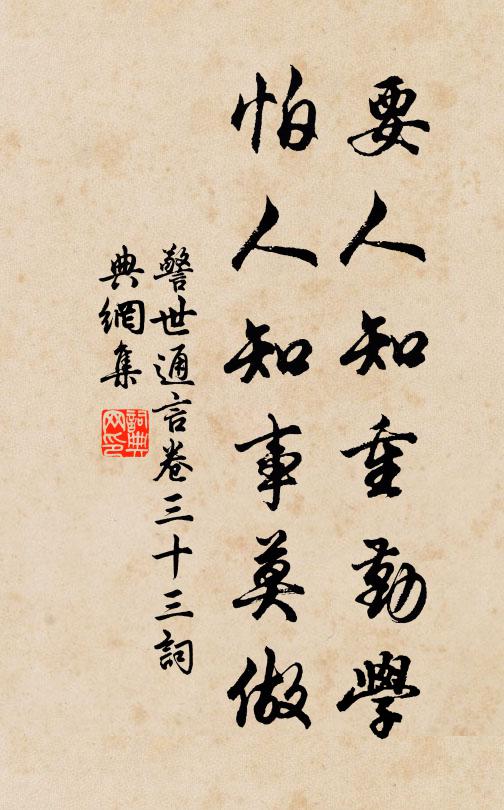 要人知重勤學
怕人知事莫做
警世通言卷三十三詞
典網集
詞典
网印